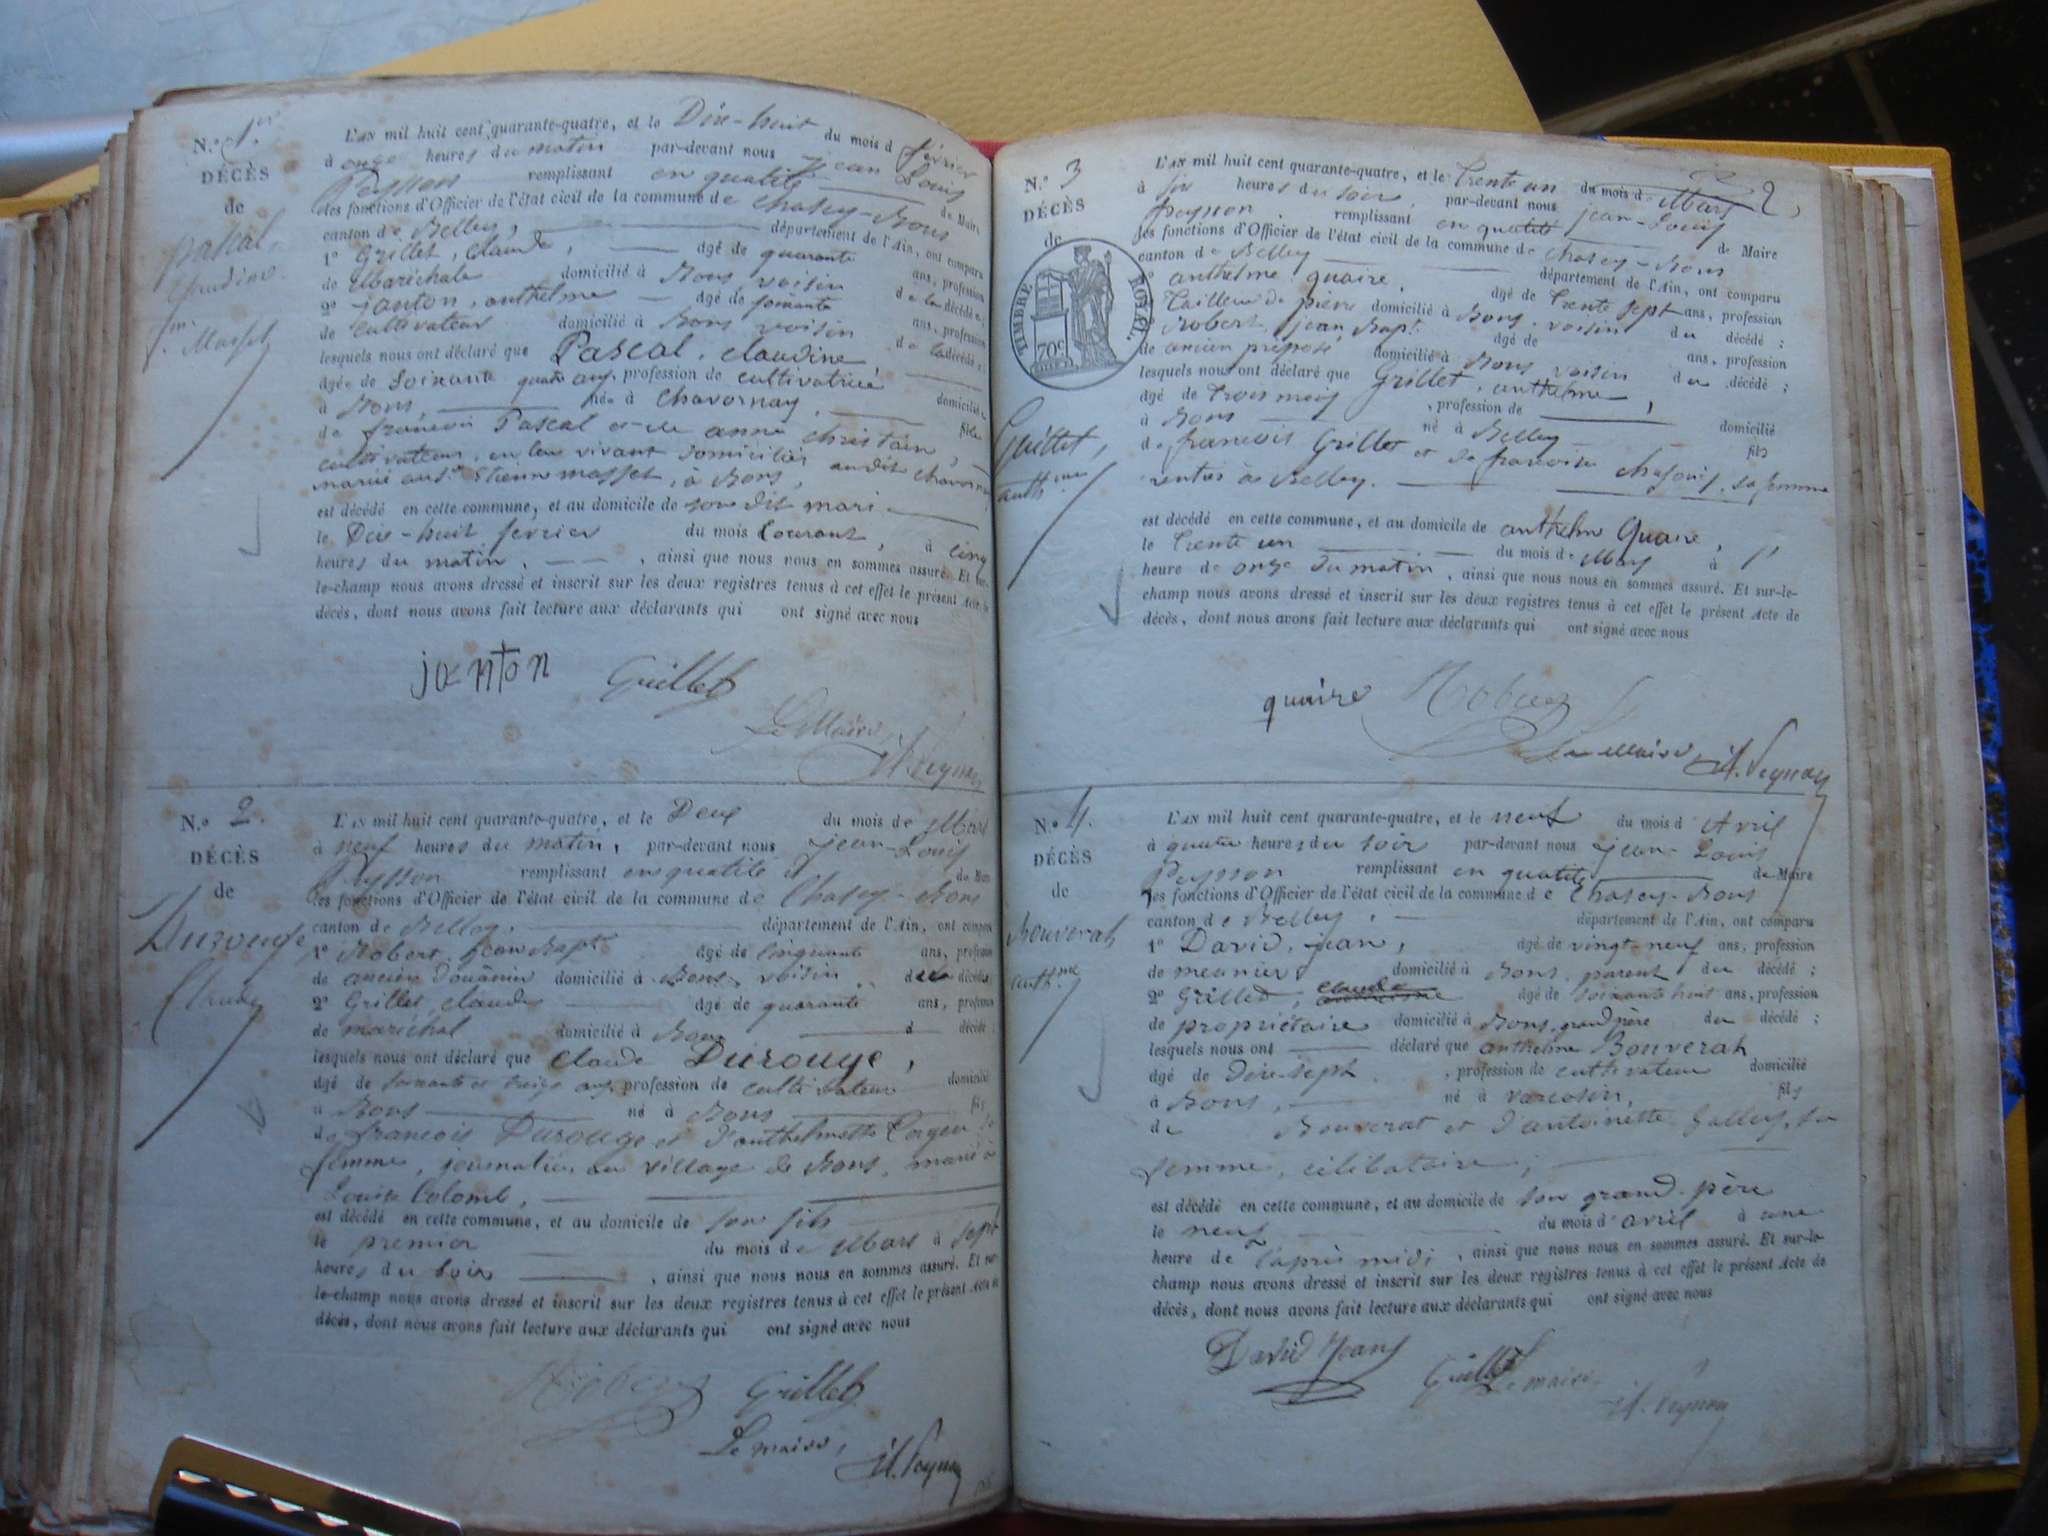 N.o 1er
DÉCÈS
de
Pascal,
Claudine
fme Masset
L'AN mil huit cent quarante-quatre, et le Dix-huit du mois d février
à onze heures du matin par-devant nous jean Louis
Peysson remplissant en qualité de Maire
des fonctions d'Officier de l'état civil de la commune de Chasey-Bons
canton de Belley, département de l'Ain, ont comparu
1º Grillet, Claude, âgé de quarante ans, profession
de Maréchale domicilié à Bons, voisin de la décédée;
2º janton, anthelme âgé de soixante ans, profession
de cultivateur domicilié à Bons voisin de la décédée;
lesquels nous ont déclaré que Pascal, claudine
âgée de soixante quatre ans, profession de cultivatrice domiciliée
à Bons, née à Chavornay, fille
de francois Pascal et de anne christin,
cultivateurs, en leur vivant domiciliés audit chavornay
mariée au Sr Etienne masset, à Bons,
est décédé en cette commune, et au domicile de son dit mari
le Dix-huit fevrier du mois Courant, à cinq
heures du matin, ainsi que nous nous en sommes assuré. Et sur-
le-champ nous avons dressé et inscrit sur les deux registres tenus à cet effet le présent Acte de
décès, dont nous avons fait lecture aux déclarants qui ont signé avec nous
janton Grillet
Le Maire,
N.o 2.
DÉCÈS
de
Durouge
Claude
L'AN mil huit cent quarante-quatre, et le Deux du mois de Mars
à neuf heures du matin, par-devant nous jean-Louis
Peysson remplissant en qualité de Maire
les fonctions d'Officier de l'état civil de la commune de Chasey-Bons
canton de Belley, département de l'Ain, ont comparu
1º Robert jean Bapte âgé de cinquante ans, profession
de ancien douanier domicilié à Bons, voisin du décédé
2º Grillet, claude âgé de quarante ans, profession
de maréchal domicilié à Bons d décédé;
lesquels nous ont déclaré que claude Durouge,
âgé de soixante et treize ans, profession de cultivateur domicilié
à Bons né à Bons fils
de francois Durouge et d'anthelmette
femme, journaliers au village de Bons, marié à
Louise Colomb,
est décédé en cette commune, et au domicile de son fils
le premier du mois de Mars à sept
heures du soir, ainsi que nous nous en sommes assuré. Et sur-
le-champ nous avons dressé et inscrit sur les deux registres tenus à cet effet le présent Acte de
décès, dont nous avons fait lecture aux déclarants qui ont signé avec nous
Robert Grillet
Le maire,
N.o 3
DÉCÈS
de
TIMBRE ROYAL
70c
Grillet,
anthme
2
L'AN mil huit cent quarante-quatre, et le trente un du mois de Mars
à six heures du soir, par-devant nous jean-Louis
Peysson remplissant en qualité de Maire
les fonctions d'Officier de l'état civil de la commune de Chasey-Bons
canton de Belley département de l'Ain, ont comparu
1º anthelme quaire, âgé de trente sept ans, profession
Tailleur de pierre domicilié à Bons, voisin du décédé;
Robert, jean Bapt. âgé de ans, profession
de ancien préposé domicilié à Bons voisin du décédé;
lesquels nous ont déclaré que Grillet, anthelme,
âgé de trois mois, profession de domicilié
à Bons né à Belley fils
de francois Grillet et de francoise sa femme
rentiers à Belley.
est décédé en cette commune, et au domicile de anthelme Quaire,
le trente un du mois de Mars à
heure de onze du matin, ainsi que nous nous en sommes assuré. Et sur-le-
champ nous avons dressé et inscrit sur les deux registres tenus à cet effet le présent Acte de
décès, dont nous avons fait lecture aux déclarants qui ont signé avec nous
quaire Robert
Le Maire
N.o 4.
DÉCÈS
de
Bouverat
anthme
L'AN mil huit cent quarante-quatre, et le neuf du mois d'Avril
à quatre heures du soir par-devant nous jean-Louis
Peysson remplissant en qualité de Maire
les fonctions d'Officier de l'état civil de la commune de Chasey-Bons
canton de Belley, département de l'Ain, ont comparu
1º David, jean, âgé de vingt-neuf ans, profession
de meunier domicilié à Bons, parent du décédé;
2º Grillet, claude âgé de soixante huit ans, profession
de propriétaire domicilié à Bons, grand père du décédé;
lesquels nous ont déclaré que anthelme Bouverat
âgé de Dix-sept, profession de cultivateur domicilié
à Bons, né à fils
de Bouverat et d'antoinette sa
femme, célibataire;
est décédé en cette commune, et au domicile de son grand-père
le neuf du mois d'avril à une
heure de l'après midi, ainsi que nous nous en sommes assuré. Et sur-le-
champ nous avons dressé et inscrit sur les deux registres tenus à cet effet le présent Acte de
décès, dont nous avons fait lecture aux déclarants qui ont signé avec nous
David Jean
Grillet
Le maire